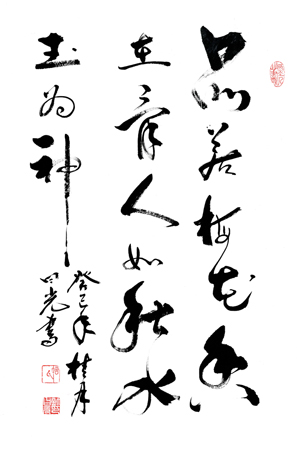 品若梅花香
在骨人如秋水
玉为神
癸巳年桂月
明光书